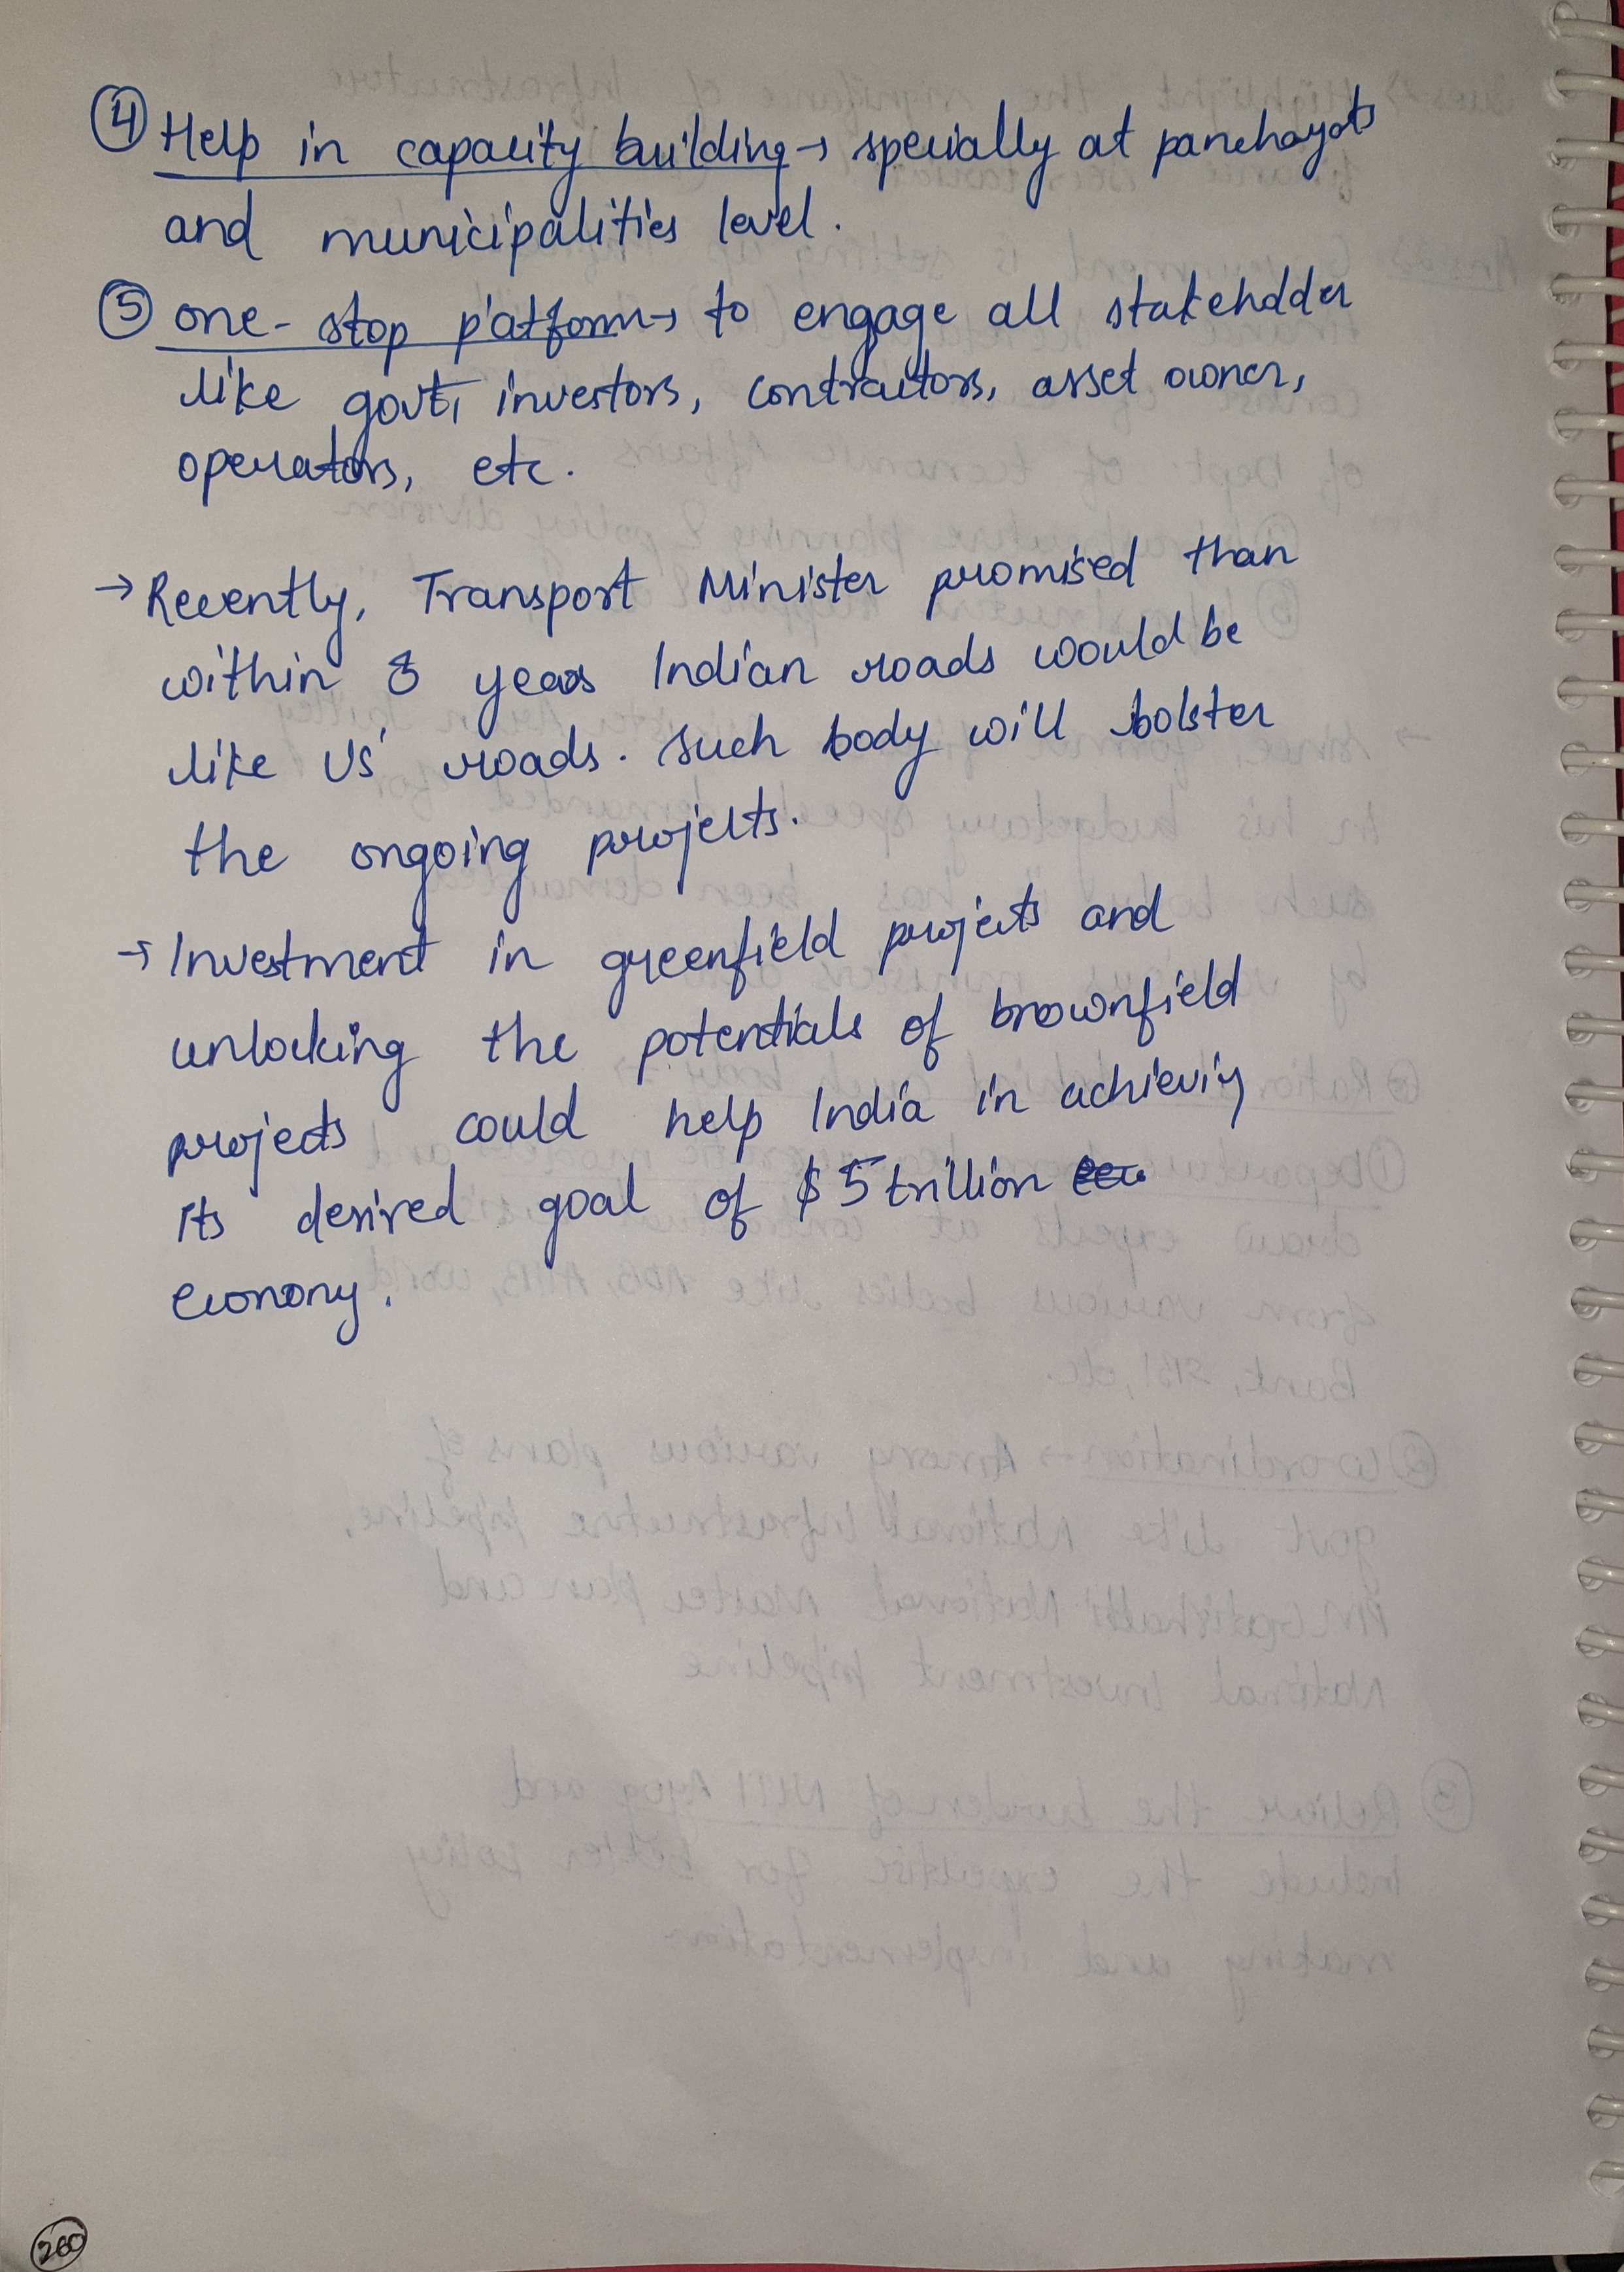 ④ Help in capacity building → specially at panchayats
and municipalities level.
⑤ one-stop platform → to engage all stakeholder
like govt, investors, contractors, asset owner,
operators, etc.
→ Recently, Transport Minister promised than
within 8 years Indian roads would be
like US' roads. Such body will bolster
the ongoing projects.
→ Investment in greenfield projects and
unlocking the potentials of brownfield
projects could help India in achieving
its desired goal of $5 trillion
economy.
260